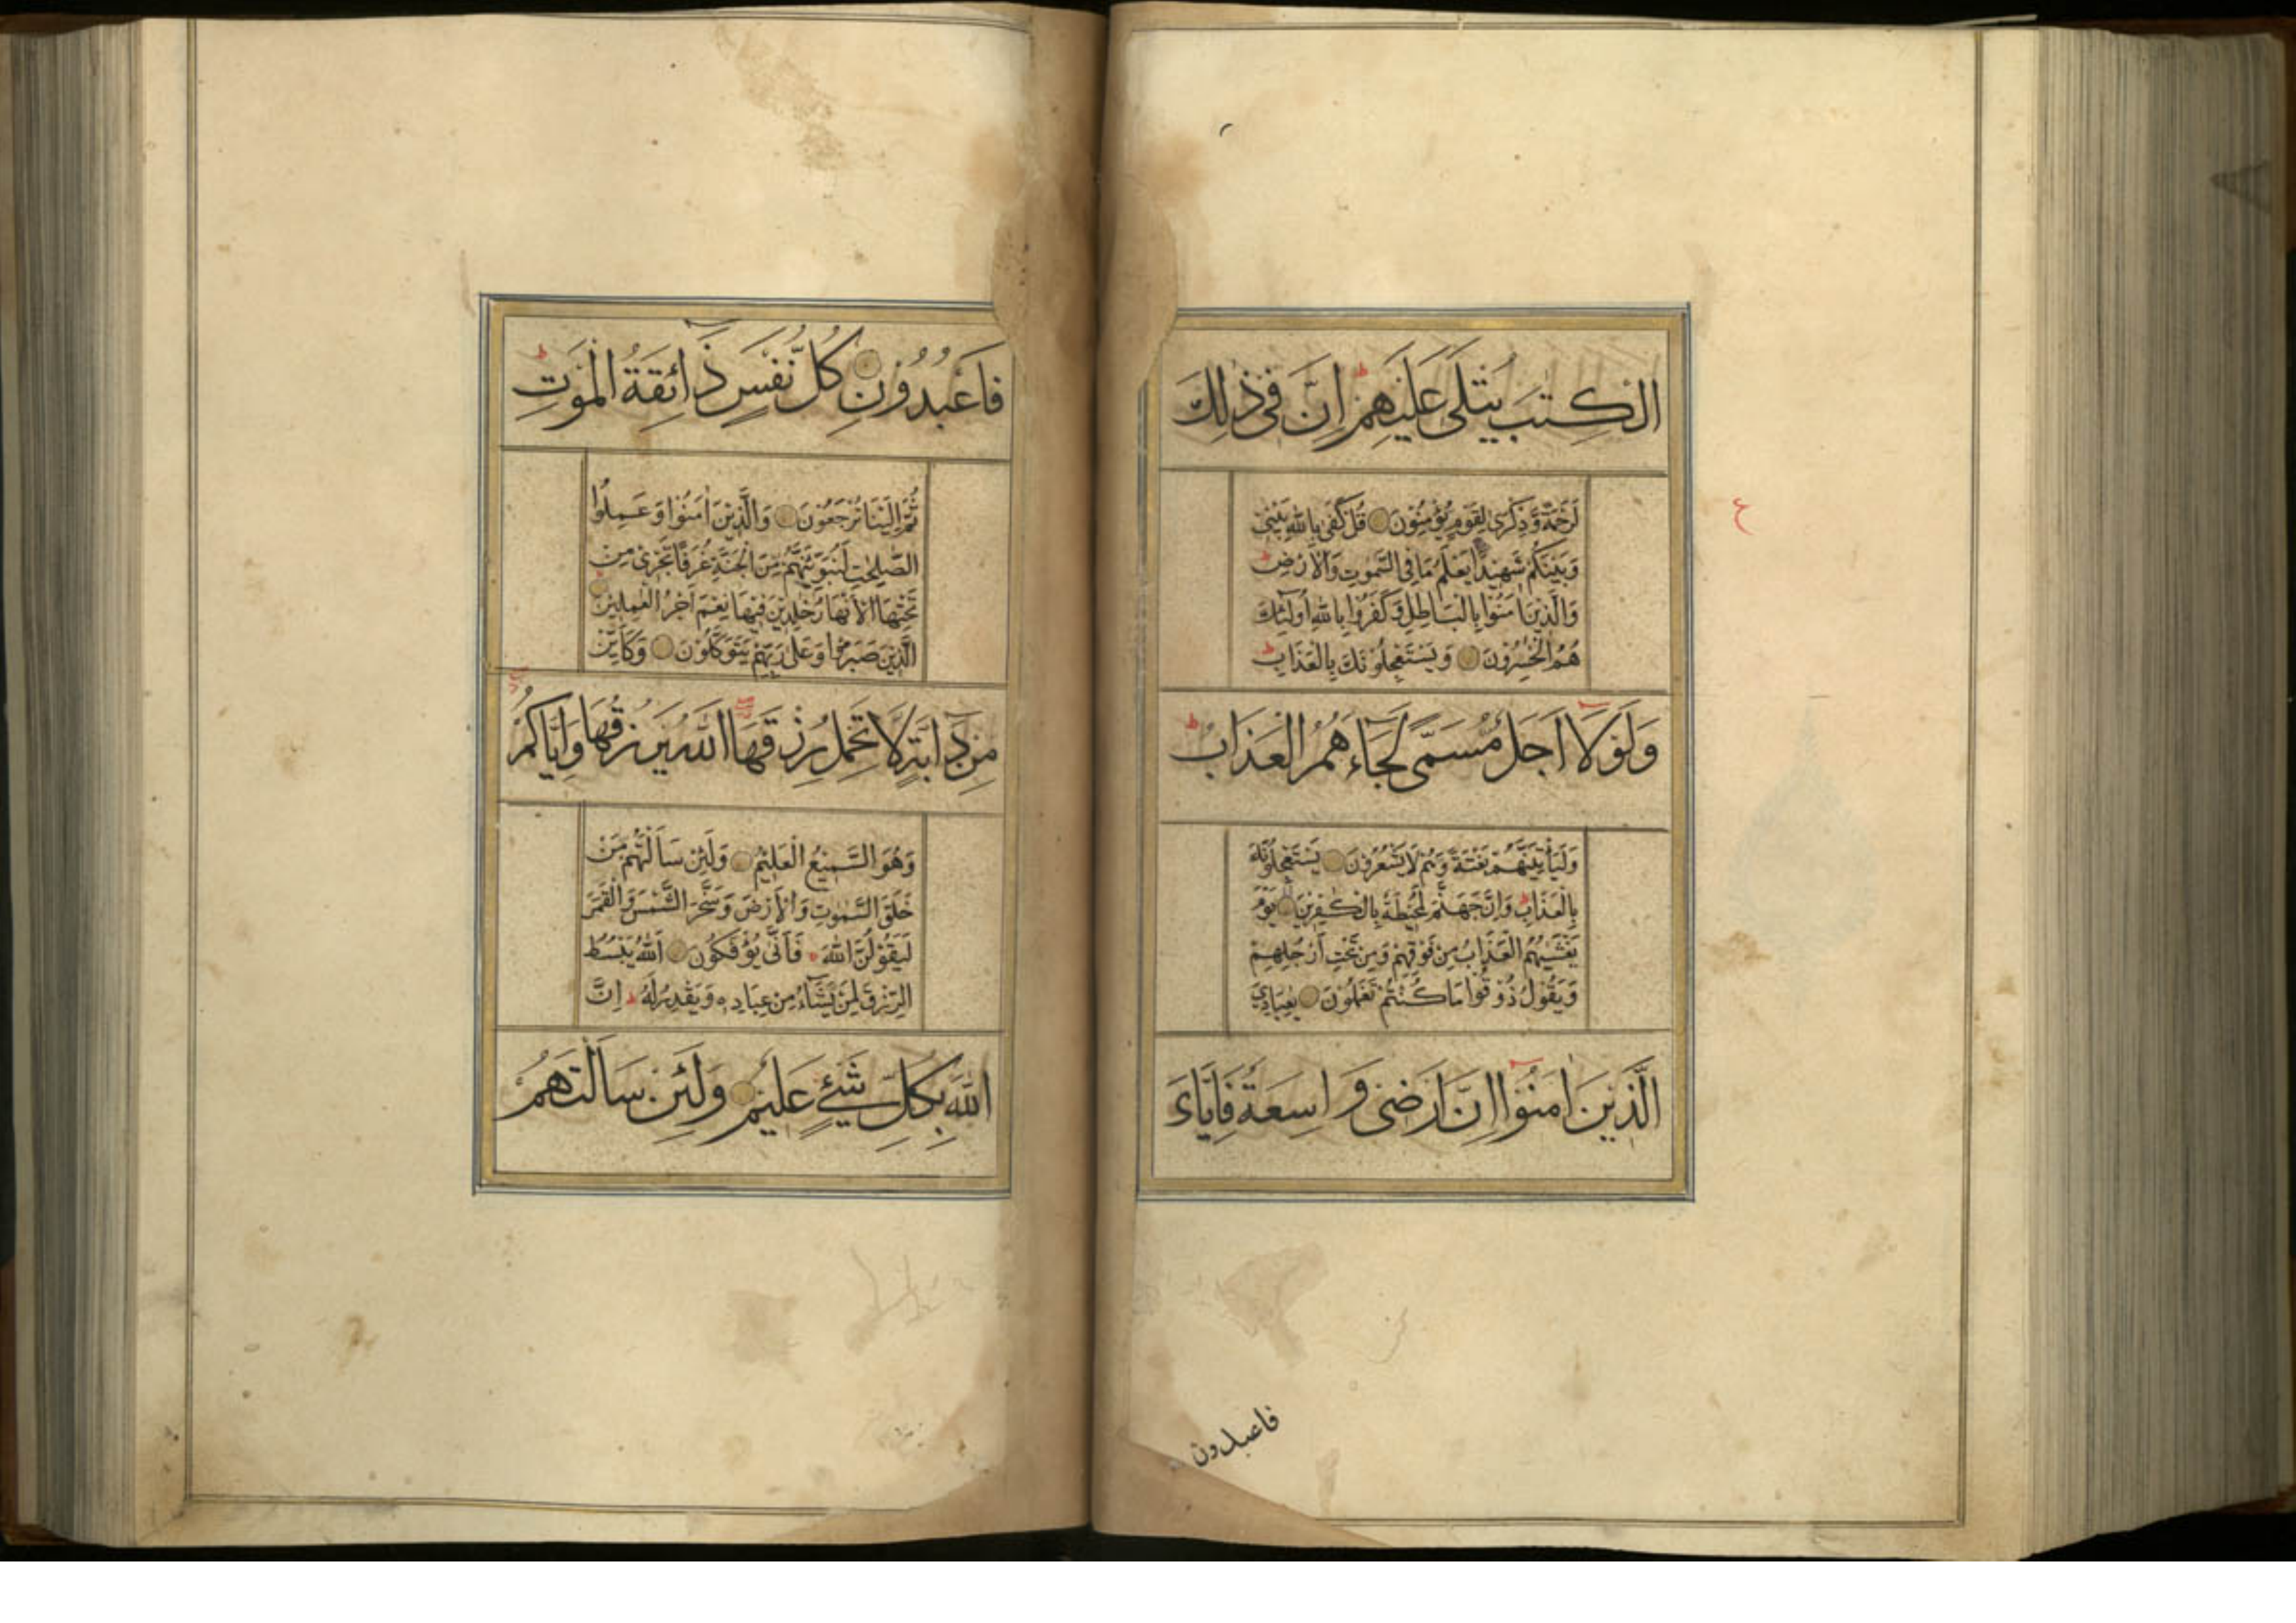 الْكِتٰبَ يُتْلٰى عَلَيْهِمْ ط اِنَّ فِى ذٰلِكَ
لَرَحْمَةً وَّذِكْرٰى لِقَوْمٍ يُّؤْمِنُوْنَ قُلْ كَفٰى بِاللّٰهِ بَيْنِىْ
وَبَيْنَكُمْ شَهِيْدًا يَعْلَمُ مَا فِى السَّمٰوٰتِ وَالْاَرْضِ ط
وَالَّذِيْنَ اٰمَنُوْا بِالْبَاطِلِ وَكَفَرُوْا بِاللّٰهِ اُولٰٓئِكَ
هُمُ الْخٰسِرُوْنَ وَيَسْتَعْجِلُوْنَكَ بِالْعَذَابِ ط
وَلَوْلَآ اَجَلٌ مُّسَمًّى لَّجَآءَهُمُ الْعَذَابُ ط
وَلَيَأْتِيَنَّهُمْ بَغْتَةً وَّهُمْ لَا يَشْعُرُوْنَ يَسْتَعْجِلُوْنَكَ
بِالْعَذَابِ ط وَاِنَّ جَهَنَّمَ لَمُحِيْطَةٌ بِالْكٰفِرِيْنَ يَوْمَ
يَغْشٰىهُمُ الْعَذَابُ مِنْ فَوْقِهِمْ وَمِنْ تَحْتِ اَرْجُلِهِمْ
وَيَقُوْلُ ذُوْقُوْا مَا كُنْتُمْ تَعْمَلُوْنَ يٰعِبَادِىَ
الَّذِيْنَ اٰمَنُوْٓا اِنَّ اَرْضِىْ وَاسِعَةٌ فَاِيَّاىَ
فاعبدون
ع
فَاعْبُدُوْنِ كُلُّ نَفْسٍ ذَآئِقَةُ الْمَوْتِ ط
ثُمَّ اِلَيْنَا تُرْجَعُوْنَ وَالَّذِيْنَ اٰمَنُوْا وَعَمِلُوا
الصّٰلِحٰتِ لَنُبَوِّئَنَّهُمْ مِّنَ الْجَنَّةِ غُرَفًا تَجْرِىْ مِنْ
تَحْتِهَا الْاَنْهَارُ خٰلِدِيْنَ فِيْهَا نِعْمَ اَجْرُ الْعٰمِلِيْنَ
الَّذِيْنَ صَبَرُوْا وَعَلٰى رَبِّهِمْ يَتَوَكَّلُوْنَ وَكَاَيِّنْ
مِنْ دَآبَّةٍ لَّا تَحْمِلُ رِزْقَهَا اللّٰهُ يَرْزُقُهَا وَاِيَّاكُمْ
وَهُوَ السَّمِيْعُ الْعَلِيْمُ وَلَئِنْ سَاَلْتَهُمْ مَّنْ
خَلَقَ السَّمٰوٰتِ وَالْاَرْضَ وَسَخَّرَ الشَّمْسَ وَالْقَمَرَ
لَيَقُوْلُنَّ اللّٰهُ فَاَنّٰى يُؤْفَكُوْنَ اَللّٰهُ يَبْسُطُ
الرِّزْقَ لِمَنْ يَّشَآءُ مِنْ عِبَادِهٖ وَيَقْدِرُ لَهٗ ط اِنَّ
اللّٰهَ بِكُلِّ شَىْءٍ عَلِيْمٌ وَلَئِنْ سَاَلْتَهُمْ